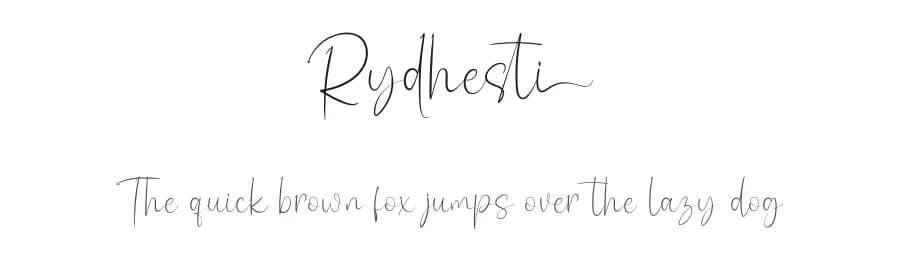 Rydhesti
The quick brown fox jumps over the lazy dog